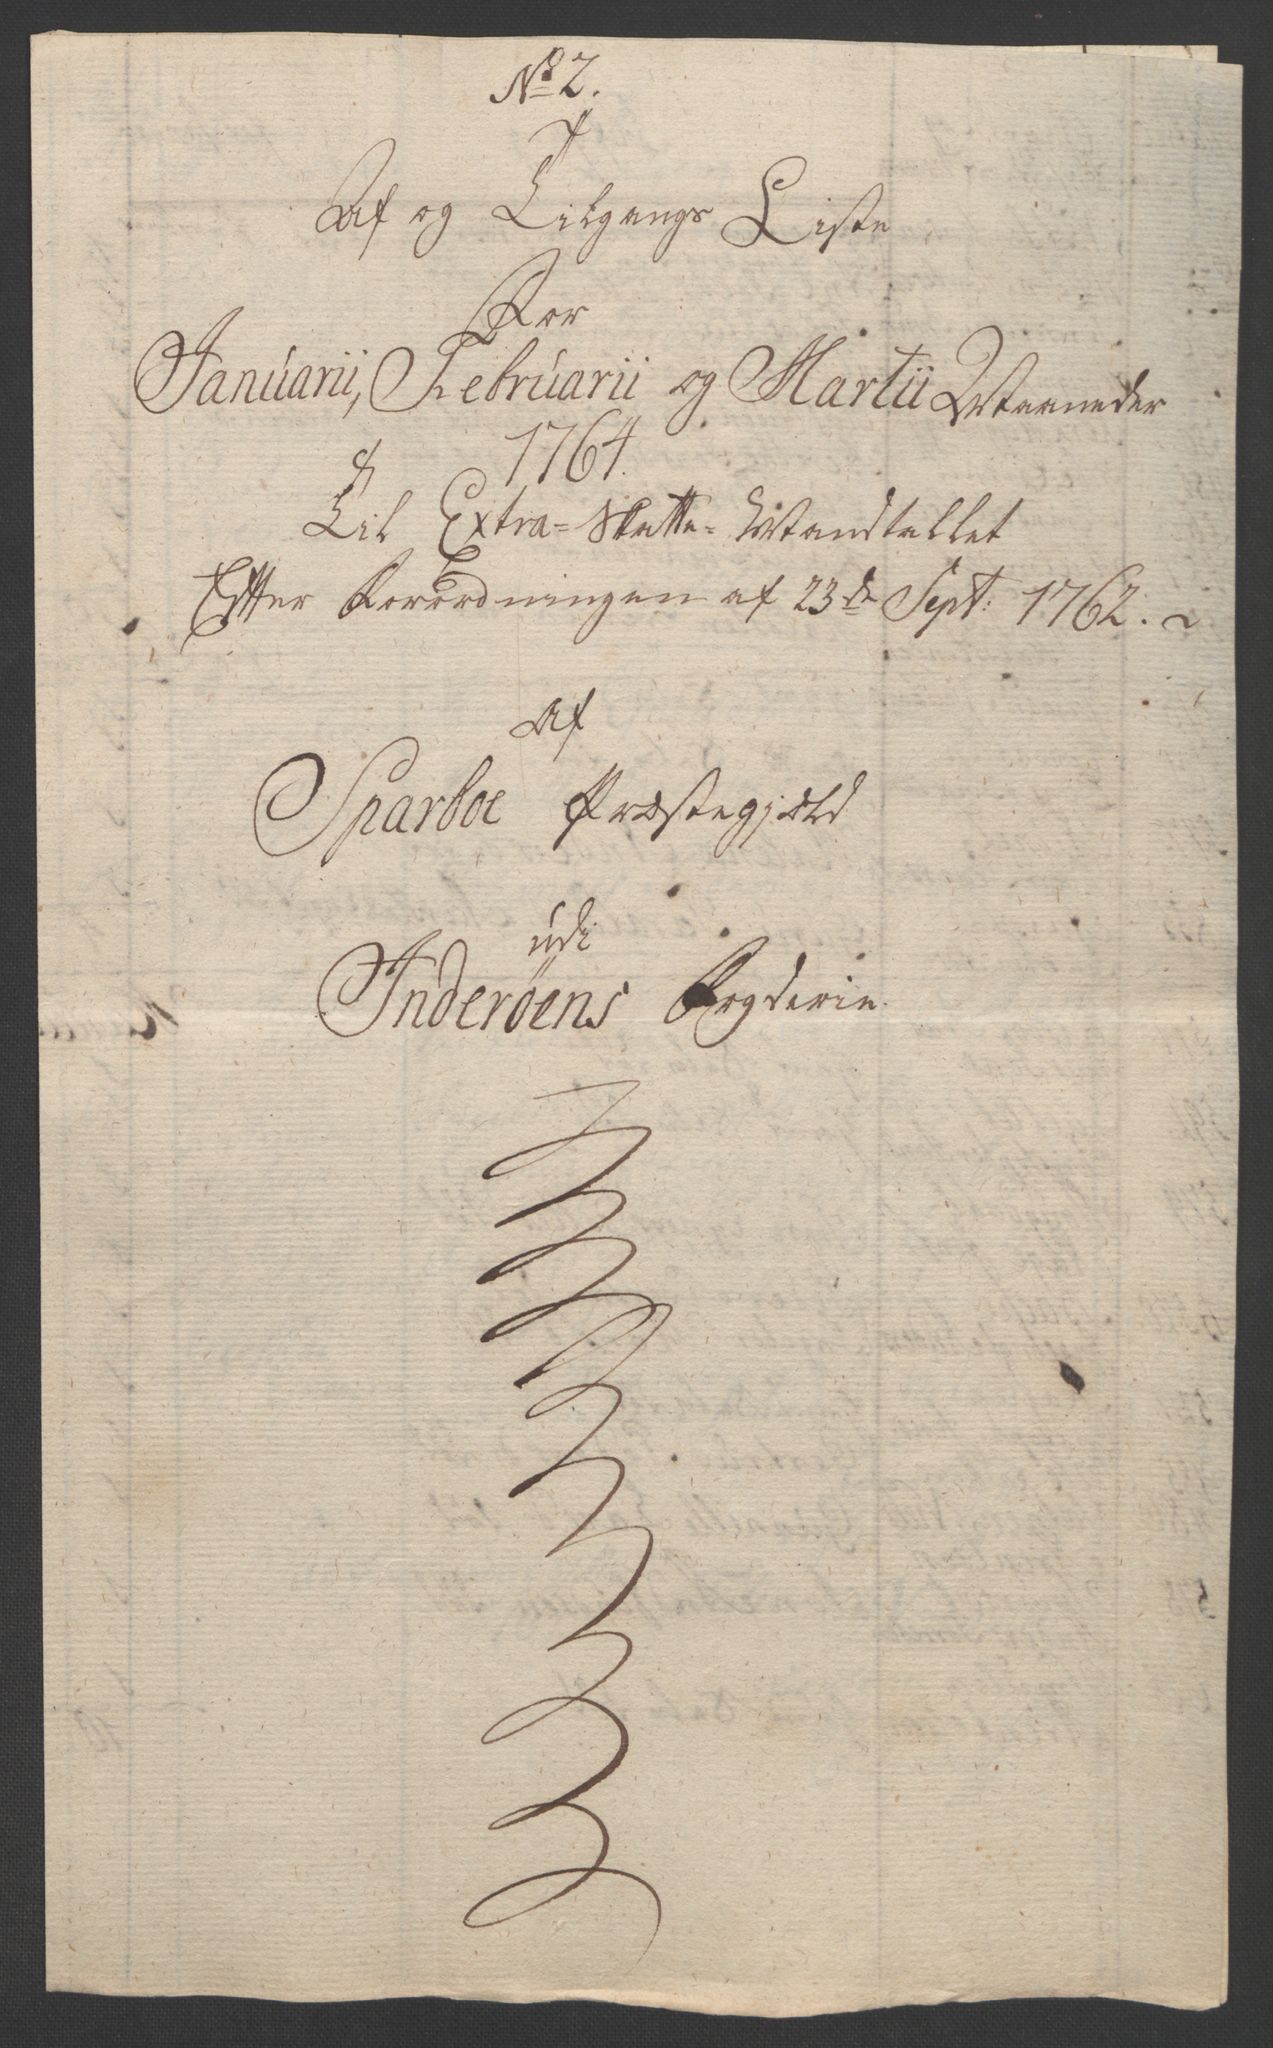 No 2.
Af og Tilgangs Liste
For
Januarii, Februarii og Martii Maaneder
1764
Til Extra-Skatte-Mandtallet
Efter Forordningen af 23de Sept: 1762.
Af
Sparboe Præstegjæld
udi
Inderöens Fogderie